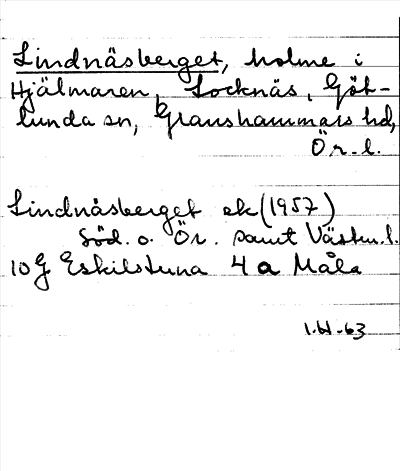 Lindnäsberget, holme i
Hjälmaren, Socknäs, Göt-
lunda sn, Glanshammars hd,
Ör. l.
Lindnäsberget ek (1957)
Söd. o. Ör. samt Västm. l.
10 G Eskilstuna 4 a Måla
-63